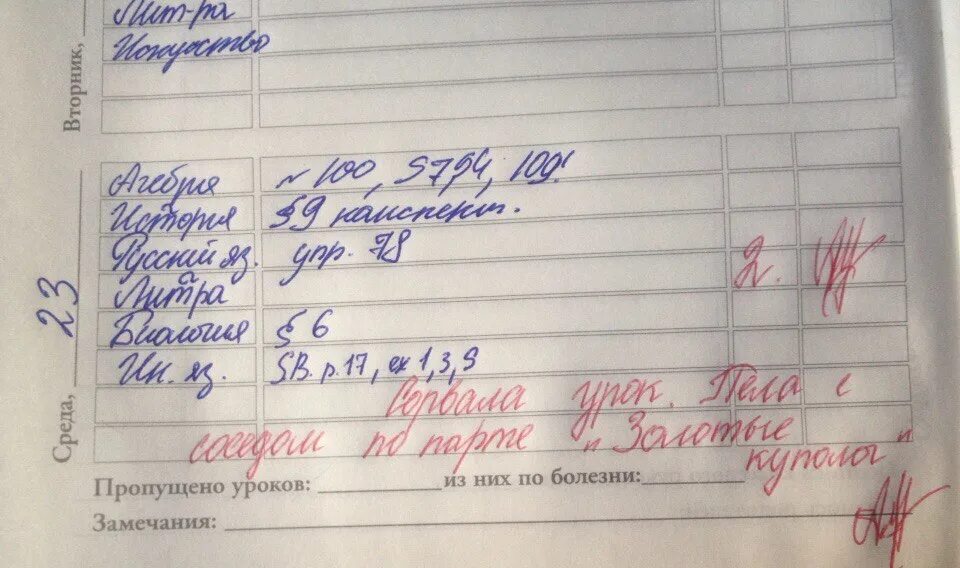 Вторник,
Лит-ра
Искусство
Среда, 23
Агебрия № 100, 5794, 109!
История §9 канспект.
Русский яз. упр. 78 2.
Литра
Биология § 6
Ин. яз. SB. p. 17, ex 1,3,9
Сорвала урок. Пела с
соседом по парте "Золотые
купола"
Пропущено уроков: из них по болезни:
Замечания: